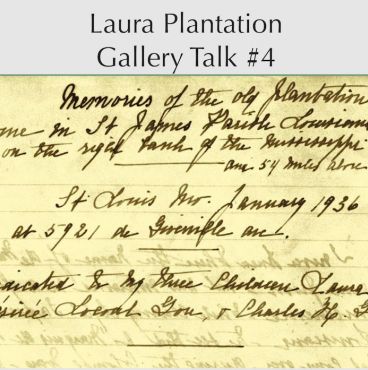 Laura Plantation
Gallery Talk #4
Memories of the old Plantation
ome in St James Parish Louisiana
on the right bank of the Mississippi
54 miles above
St Louis Mo. January 1936
at 5921 de Giverville ave.
dicated to my three Children Laura
sirée Locoul Gore, & Charles H. G